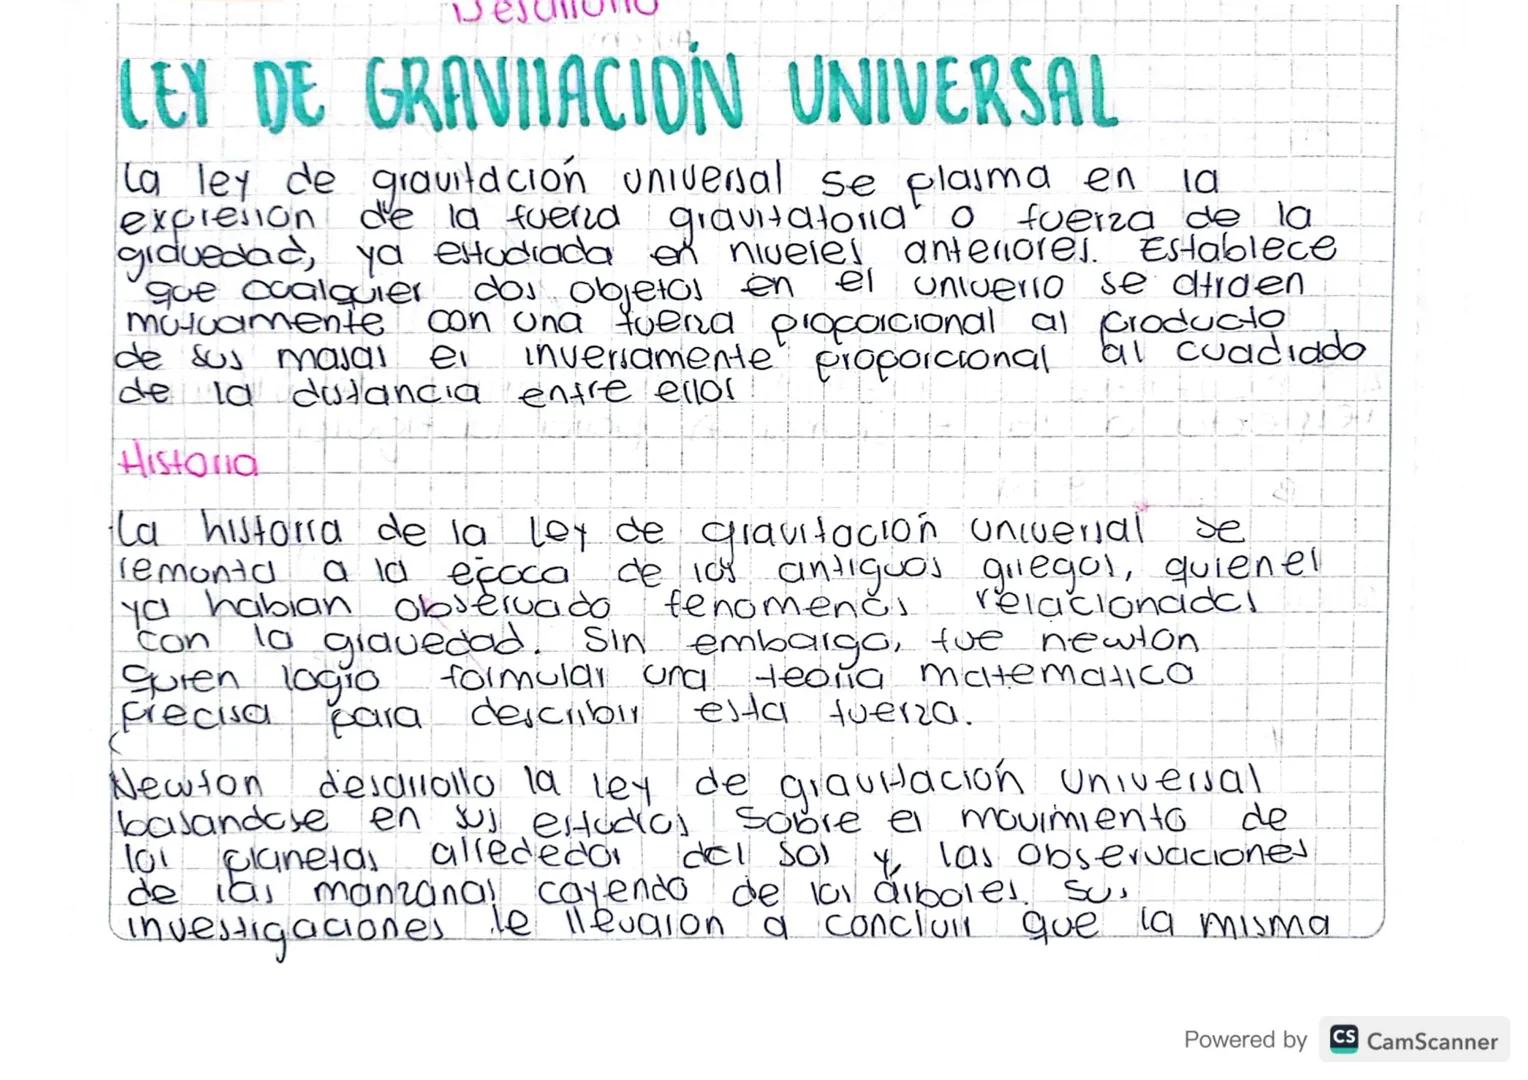 Desarrollo
LEY DE GRAVITACIÓN UNIVERSAL
La ley de gravitación universal se plasma en la
expresión de la fuerza gravitatoria o fuerza de la
gravedad, ya estudiada en niveles anteriores. Establece
que cualquier dos objetos en el universo se atraen
mutuamente con una fuerza proporcional al producto
de sus masas e inversamente proporcional al cuadrado
de la distancia entre ellos.
Historia
La historia de la ley de gravitación universal se
remonta a la epoca de los antiguos griegos, quienes
ya habian observado fenomenos relacionados
con la gravedad. Sin embargo, fue newton
quien logro formular una teoria matematica
precisa para describir esta fuerza.
Newton desarrollo la ley de gravitación universal
basandose en sus estudios sobre el movimiento de
los planetas alrededor del sol y, las observaciones
de las manzanas cayendo de los árboles. Sus
investigaciones le llevaron a concluir que la misma
Powered by CS CamScanner